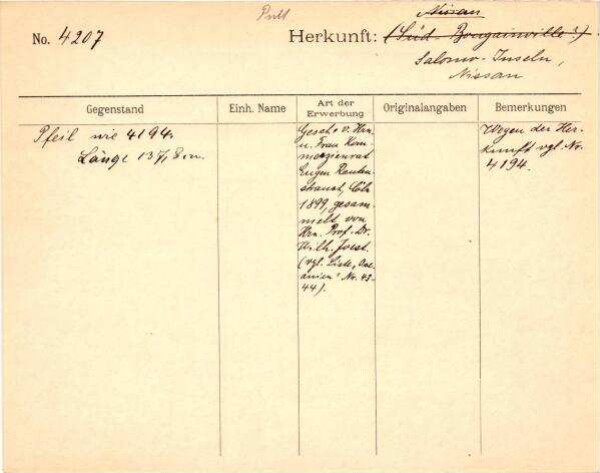 Pult
Nissan
No. 4207
Herkunft: (Süd-Bougainville?)
Salomo-Inseln,
Nissan
Gegenstand
Einh. Name
Art der Erwerbung
Originalangaben
Bemerkungen
Pfeil wie 4194.
Länge 137,8 cm.
Gesch. v. Hrn.
u. Frau Kom-
merzienrat
Eugen Rauten-
strauch, Cöln
1899, gesam-
melt von
Hrn. Prof. Dr.
Wilh. Joest.
(vgl. Liste „Oze-
anien" No. 43-
44).
Wegen der Her-
kunft vgl. No.
4194.